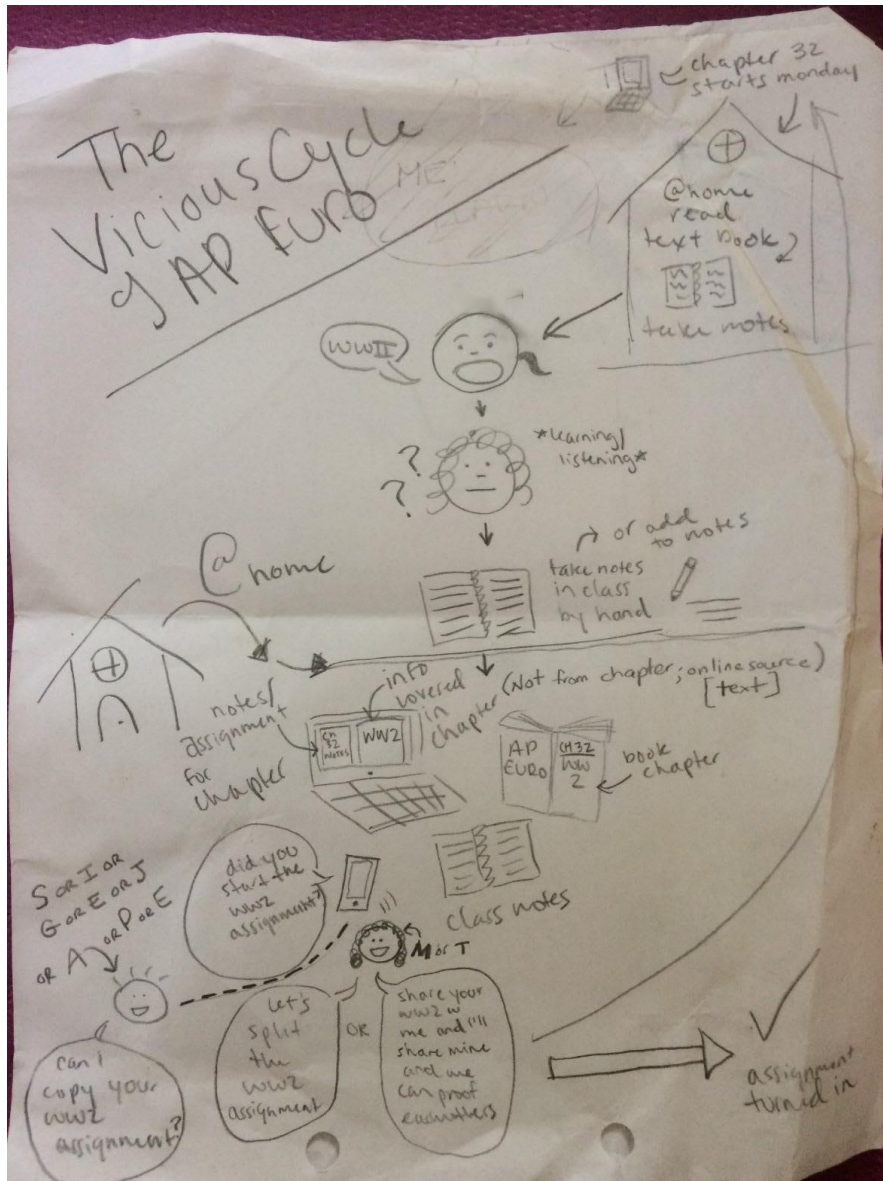 The
Vicious Cycle
of AP Euro
ME
chapter 32
starts monday
@home
read
text book
take notes
WWII
*learning/
listening*
?
?
or add
to notes
take notes
in class
by hand
@home
notes/
assignment
for
chapter
info
covered
in
chapter
(Not from chapter; online source)
[text]
CH
32
NOTES
WW2
AP
EURO
CH32
WW
2
book
chapter
class notes
did you
start the
WW2
assignment?
S OR I OR
G OR E OR J
OR A OR P OR E
M or T
can I
copy your
WW2
assignment?
Let's
split
the
WW2
assignment
OR
share your
WW2 w
me and I'll
share mine
and we
can proof
eachothers
assignment
turned in